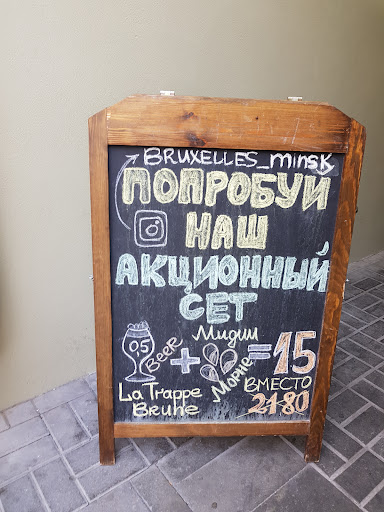 BRUXELLES_minsk
ПОПРОБУЙ
НАШ
АКЦИОННЫЙ
СЕТ
0,5 Beer + Мидии Морне = 15
La Trappe Brune
ВМЕСТО
21-80